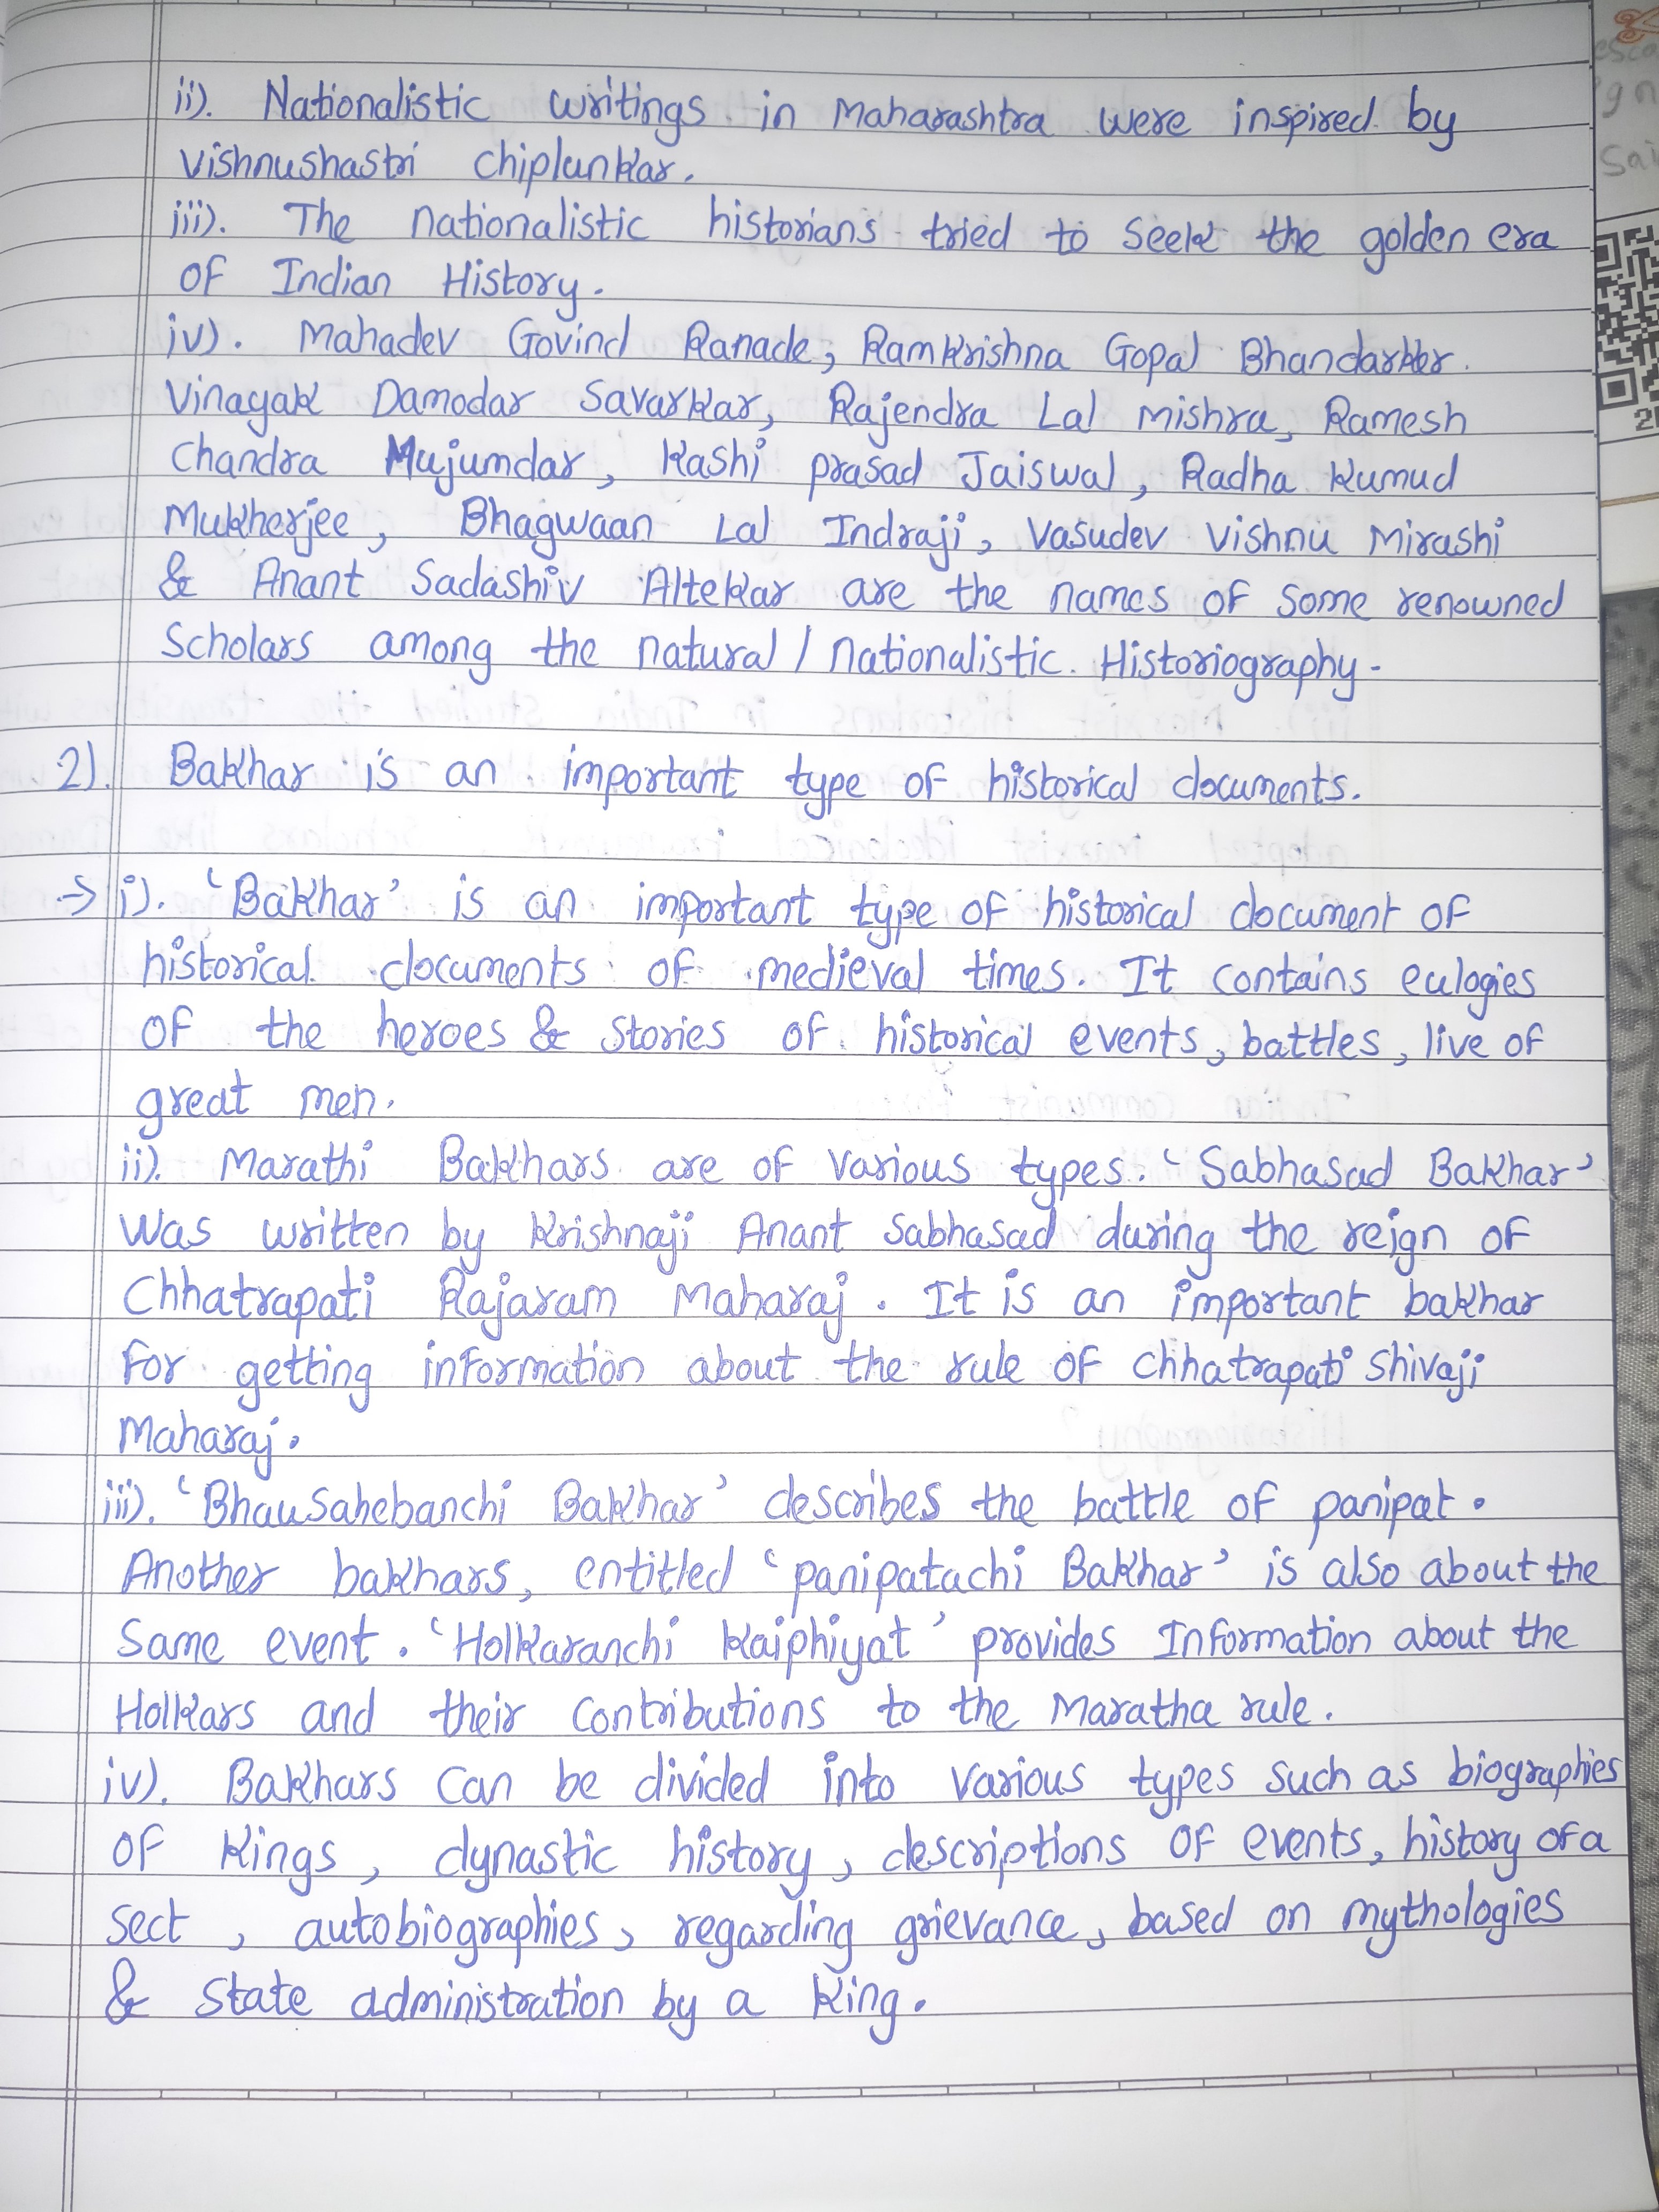 ii). Nationalistic writings in Maharashtra were inspired by
Vishnushastri Chiplunkar.
iii). The nationalistic historians tried to seek the golden era
of Indian History.
iv). Mahadev Govind Ranade, Ramkrishna Gopal Bhandarker.
Vinayak Damodar Savarkar, Rajendra Lal Mishra, Ramesh
Chandra Mujumdar, Kashi prasad Jaiswal, Radha Kumud
Mukherjee, Bhagwaan Lal Indraji, Vasudev Vishnu Mirashi
& Anant Sadashiv Altekar are the names of some renowned
Scholars among the natural / nationalistic. Historiography.
2). Bakhar is an important type of historical documents.
→ i). 'Bakhar' is an important type of historical document of
historical documents of medieval times. It contains eulogies
of the heroes & stories of historical events, battles, live of
great men.
ii). Marathi Bakhars are of various types. 'Sabhasad Bakhar'
was written by Krishnaji Anant Sabhasad during the reign of
Chhatrapati Rajaram Maharaj. It is an important bakhar
for getting information about the rule of Chhatrapati Shivaji
Maharaj.
iii). 'Bhausahebanchi Bakhar' describes the battle of panipat.
Another bakhars, entitled 'panipatachi Bakhar' is also about the
same event. 'Holkaranchi Kaiphiyat' provides Information about the
Holkars and their contributions to the Maratha rule.
iv). Bakhars can be divided into various types such as biographies
of Kings, dynastic history, descriptions of events, history of a
sect, autobiographies, regarding grievance, based on mythologies
& State administration by a King.